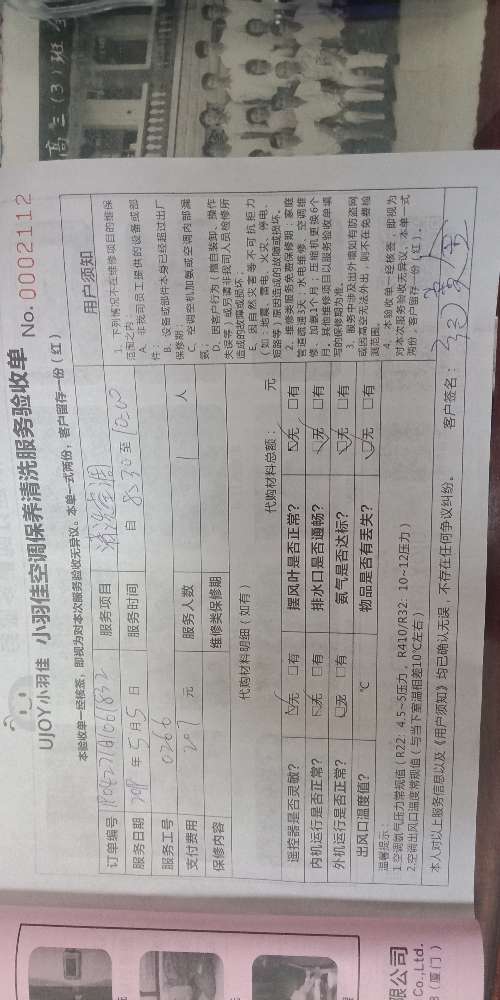 高三(3)班
UJOY小羽佳 小羽佳空调保养清洗服务验收单 No. 0002112
本验收单一经核签，即视为对本次服务验收无异议。本单一式两份，客户留存一份（红）
订单编号
服务项目 清洗空调
服务日期 年5月5日
服务时间 自8:30至10:00
服务工号 0266
支付费用 207 元
服务人数 1 人
保修内容
维修类保修期
代购材料明细（如有）
代购材料总额： 元
遥控器是否灵敏？ 无 有
摆风叶是否正常？ 无 有
内机运行是否正常？ 无 有
排水口是否通畅？ 无 有
外机运行是否正常？ 无 有
氨气是否达标？ 无 有
出风口温度值？ ℃
物品是否有丢失？ 无 有
温馨提示：
1.空调氨气压力常规值（R22：4.5~5压力，R410/R32：10~12压力）
2.空调出风口温度常规值（与当下室温相差10℃左右）
本人对以上服务信息以及《用户须知》均已确认无误，不存在任何争议纠纷。
客户签名：
用户须知
1、下列情况不在维修项目的维保
范围之内：
A、非我司员工提供的设备或部
件；
B、设备或部件本身已经超过出厂
保修期；
C、空调空机加氨或空调内部漏
氨；
D、因客户行为（擅自装卸、操作
失误等）或另请非我司人员检修所
造成的故障或损坏；
E、因自然灾害等不可抗拒力
（如：地震、雷电、火灾、停电、
短路等）原因造成的故障或损坏。
2、维修类服务免费保修期：家庭
管道疏通3天，水电维修、空调维
修、加氨1个月，压缩机更换6个
月。其他维修项目以服务验收单填
写的保修期为准。
3、服务中涉及出外墙如有防盗网
或因高空无法作出，则不在免费检
测范围。
4、本验收单一经核签，即视为
对本次服务验收无异议，本单一式
两份，客户留存一份（红）。
限公司
Co.,Ltd.
（厦门）